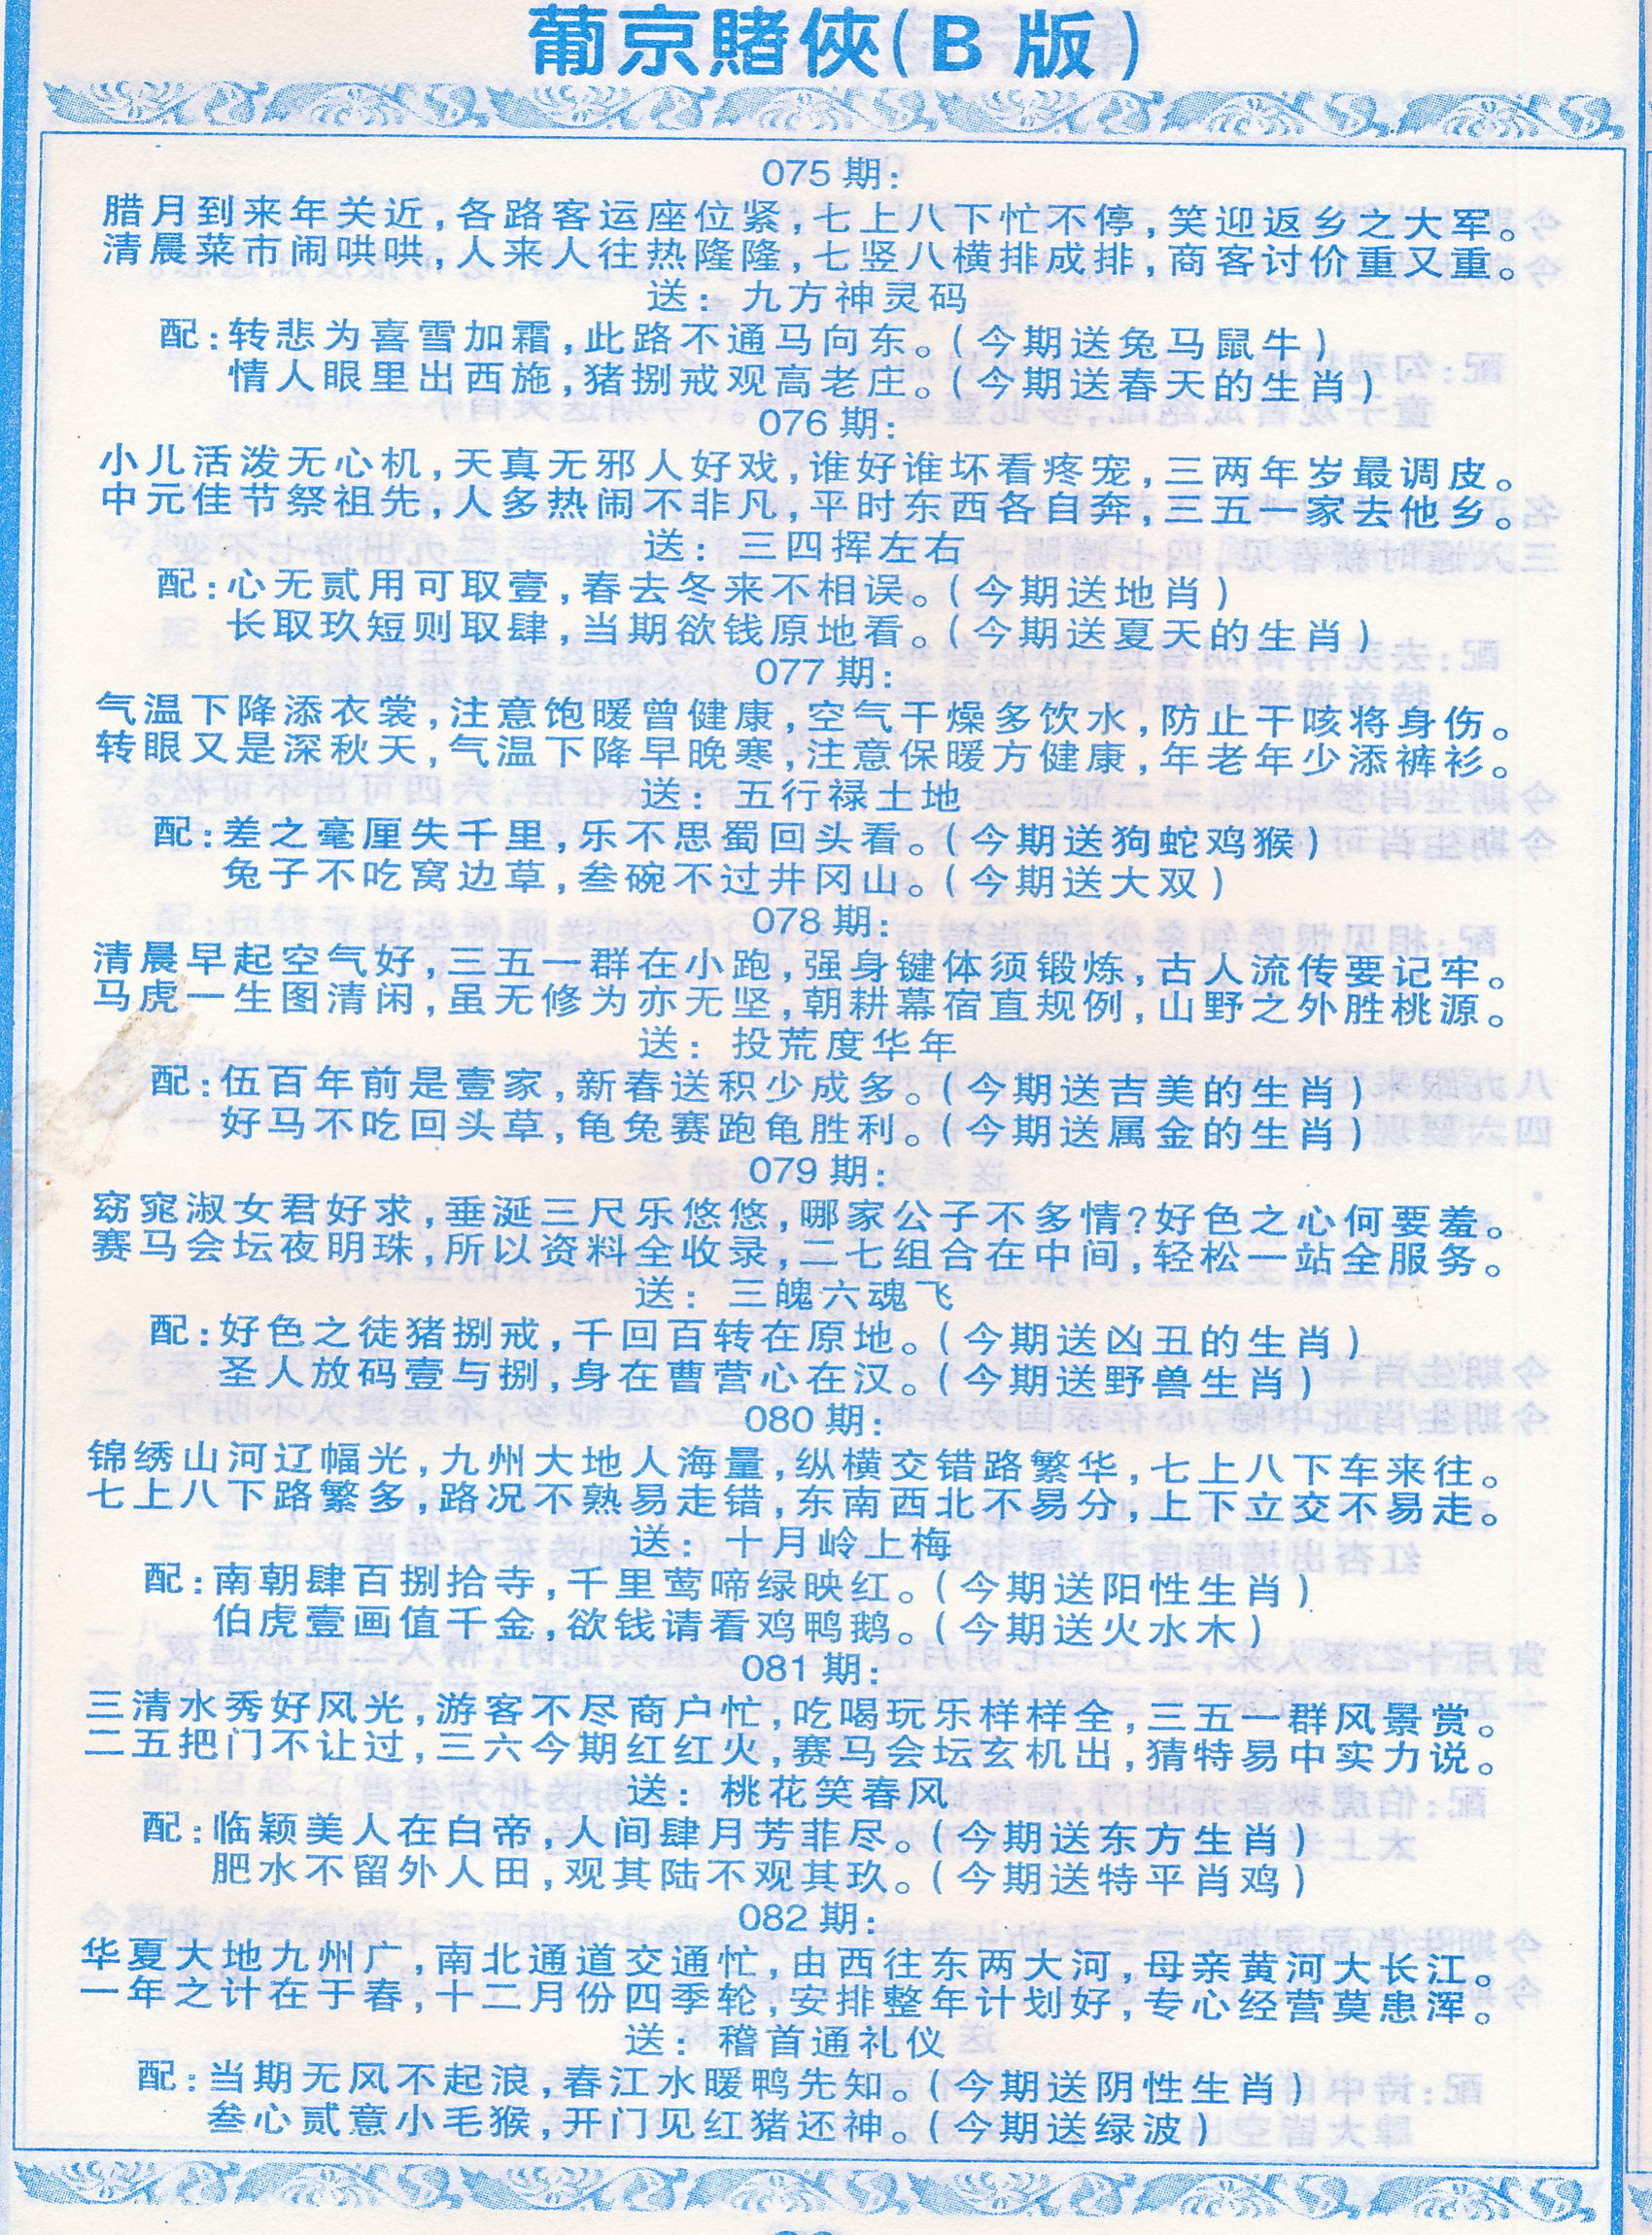 葡京賭俠(B 版)
075期:
腊月到来年关近,各路客运座位紧,七上八下忙不停,笑迎返乡之大军。
清晨菜市闹哄哄,人来人往热隆隆,七竖八横排成排,商客讨价重又重。
送: 九方神灵码
配:转悲为喜雪加霜,此路不通马向东。(今期送兔马鼠牛)
情人眼里出西施,猪捌戒观高老庄。(今期送春天的生肖)
076期:
小儿活泼无心机,天真无邪人好戏,谁好谁坏看疼宠,三两年岁最调皮。
中元佳节祭祖先,人多热闹不非凡,平时东西各自奔,三五一家去他乡。
送: 三四挥左右
配:心无贰用可取壹,春去冬来不相误。(今期送地肖)
长取玖短则取肆,当期欲钱原地看。(今期送夏天的生肖)
077期:
气温下降添衣裳,注意饱暖曾健康,空气干燥多饮水,防止干咳将身伤。
转眼又是深秋天,气温下降早晚寒,注意保暖方健康,年老年少添裤衫。
送: 五行禄土地
配:差之毫厘失千里,乐不思蜀回头看。(今期送狗蛇鸡猴)
兔子不吃窝边草,叁碗不过井冈山。(今期送大双)
078期:
清晨早起空气好,三五一群在小跑,强身键体须锻炼,古人流传要记牢。
马虎一生图清闲,虽无修为亦无坚,朝耕幕宿直规例,山野之外胜桃源。
送: 投荒度华年
配:伍百年前是壹家,新春送积少成多。(今期送吉美的生肖)
好马不吃回头草,龟兔赛跑龟胜利。(今期送属金的生肖)
079期:
窈窕淑女君好求,垂涎三尺乐悠悠,哪家公子不多情?好色之心何要羞。
赛马会坛夜明珠,所以资料全收录,二七组合在中间,轻松一站全服务。
送: 三魄六魂飞
配:好色之徒猪捌戒,千回百转在原地。(今期送凶丑的生肖)
圣人放码壹与捌,身在曹营心在汉。(今期送野兽生肖)
080期:
锦绣山河辽幅光,九州大地人海量,纵横交错路繁华,七上八下车来往。
七上八下路繁多,路况不熟易走错,东南西北不易分,上下立交不易走。
送: 十月岭上梅
配:南朝肆百捌拾寺,千里莺啼绿映红。(今期送阳性生肖)
伯虎壹画值千金,欲钱请看鸡鸭鹅。(今期送火水木)
081期:
三清水秀好风光,游客不尽商户忙,吃喝玩乐样样全,三五一群风景赏。
二五把门不让过,三六今期红红火,赛马会坛玄机出,猜特易中实力说。
送: 桃花笑春风
配:临颖美人在白帝,人间肆月芳菲尽。(今期送东方生肖)
肥水不留外人田,观其陆不观其玖。(今期送特平肖鸡)
082期:
华夏大地九州广,南北通道交通忙,由西往东两大河,母亲黄河大长江。
一年之计在于春,十二月份四季轮,安排整年计划好,专心经营莫患浑。
送: 稽首通礼仪
配:当期无风不起浪,春江水暖鸭先知。(今期送阴性生肖)
叁心贰意小毛猴,开门见红猪还神。(今期送绿波)